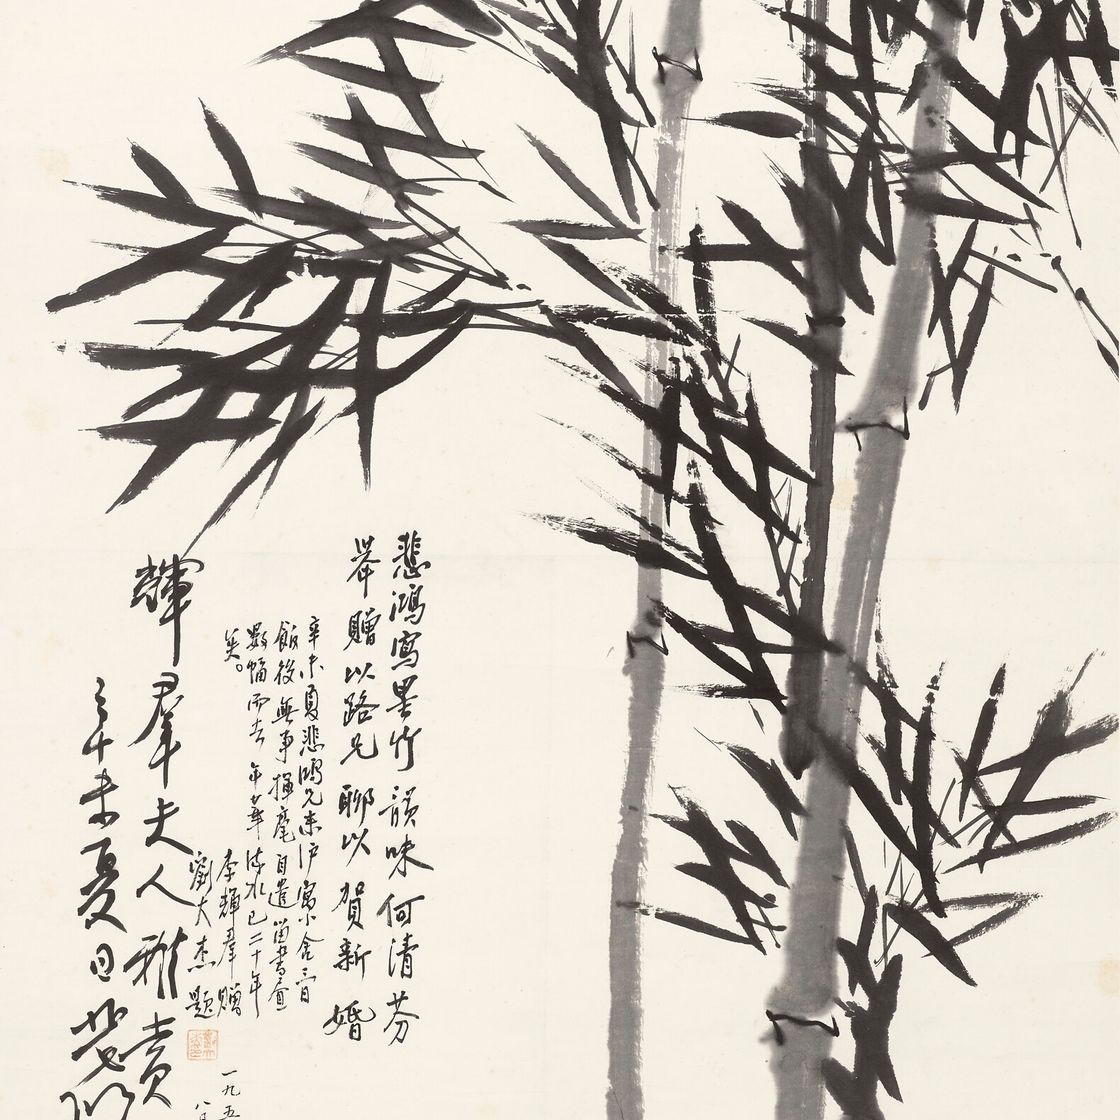 悲鴻寫墨竹韻味何清芬
舉贈以路兄聊以賀新婚
辛未夏悲鴻兄來沪寓小舍三日
飯後無事揮毫自遣留書畫
數幅而去年華流水已二十年
矣。
李輝羣贈
劉大杰題
一九五
八月
輝羣夫人雅賞
辛未夏日悲鴻